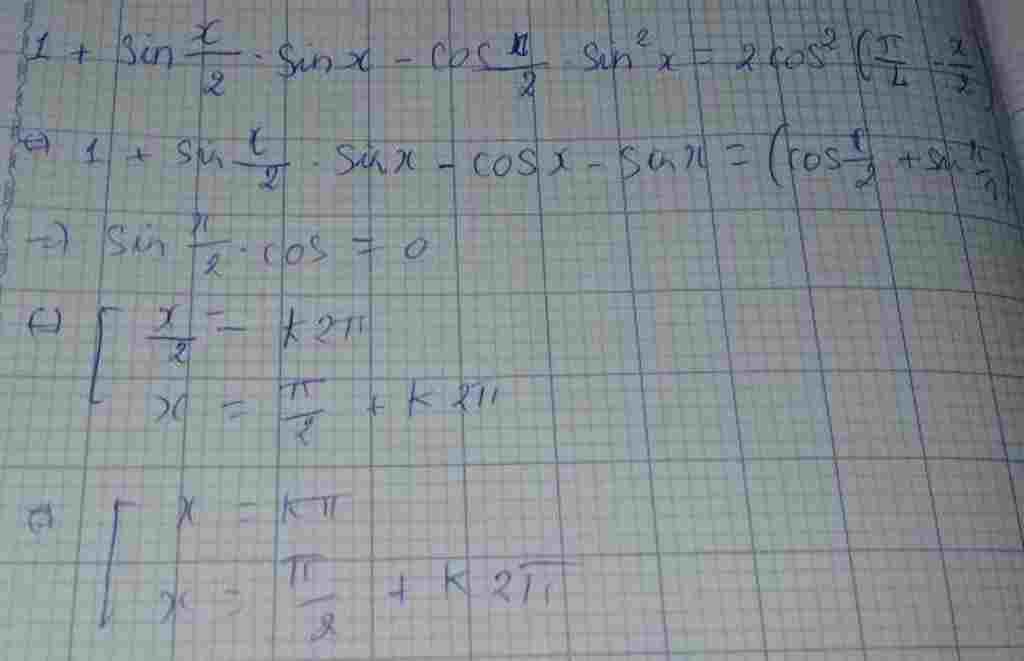 1 + sin x/2 · sin x - cos x/2 · sin² x = 2 cos² (π/4 - x/2)
⇔ 1 + sin x/2 · sin x - cos x - sin x = (cos x/2 + sin x/2)
⇔ sin x/2 · cos = 0
⇔ [ x/2 = k2π
x = π/2 + k2π
⇔ [ x = kπ
x = π/2 + k2π